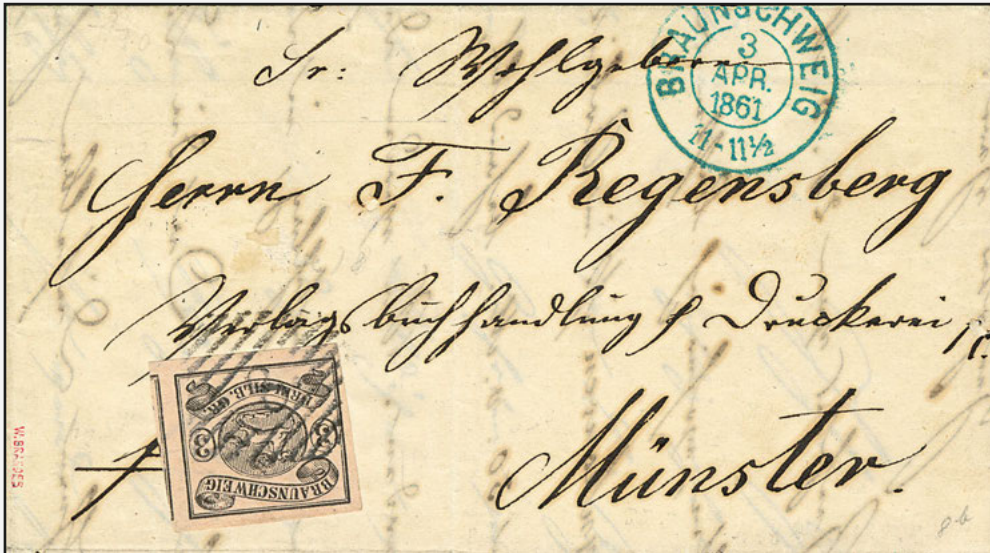 Sr: Wohlgeboren
BRAUNSCHWEIG
3
APR.
1861
11-11½
Herrn F. Regensberg
Verlagsbuchhandlung & Druckerei
Münster.
DREI SILB. GR.
3
3
BRAUNSCHWEIG
W. BRANDES